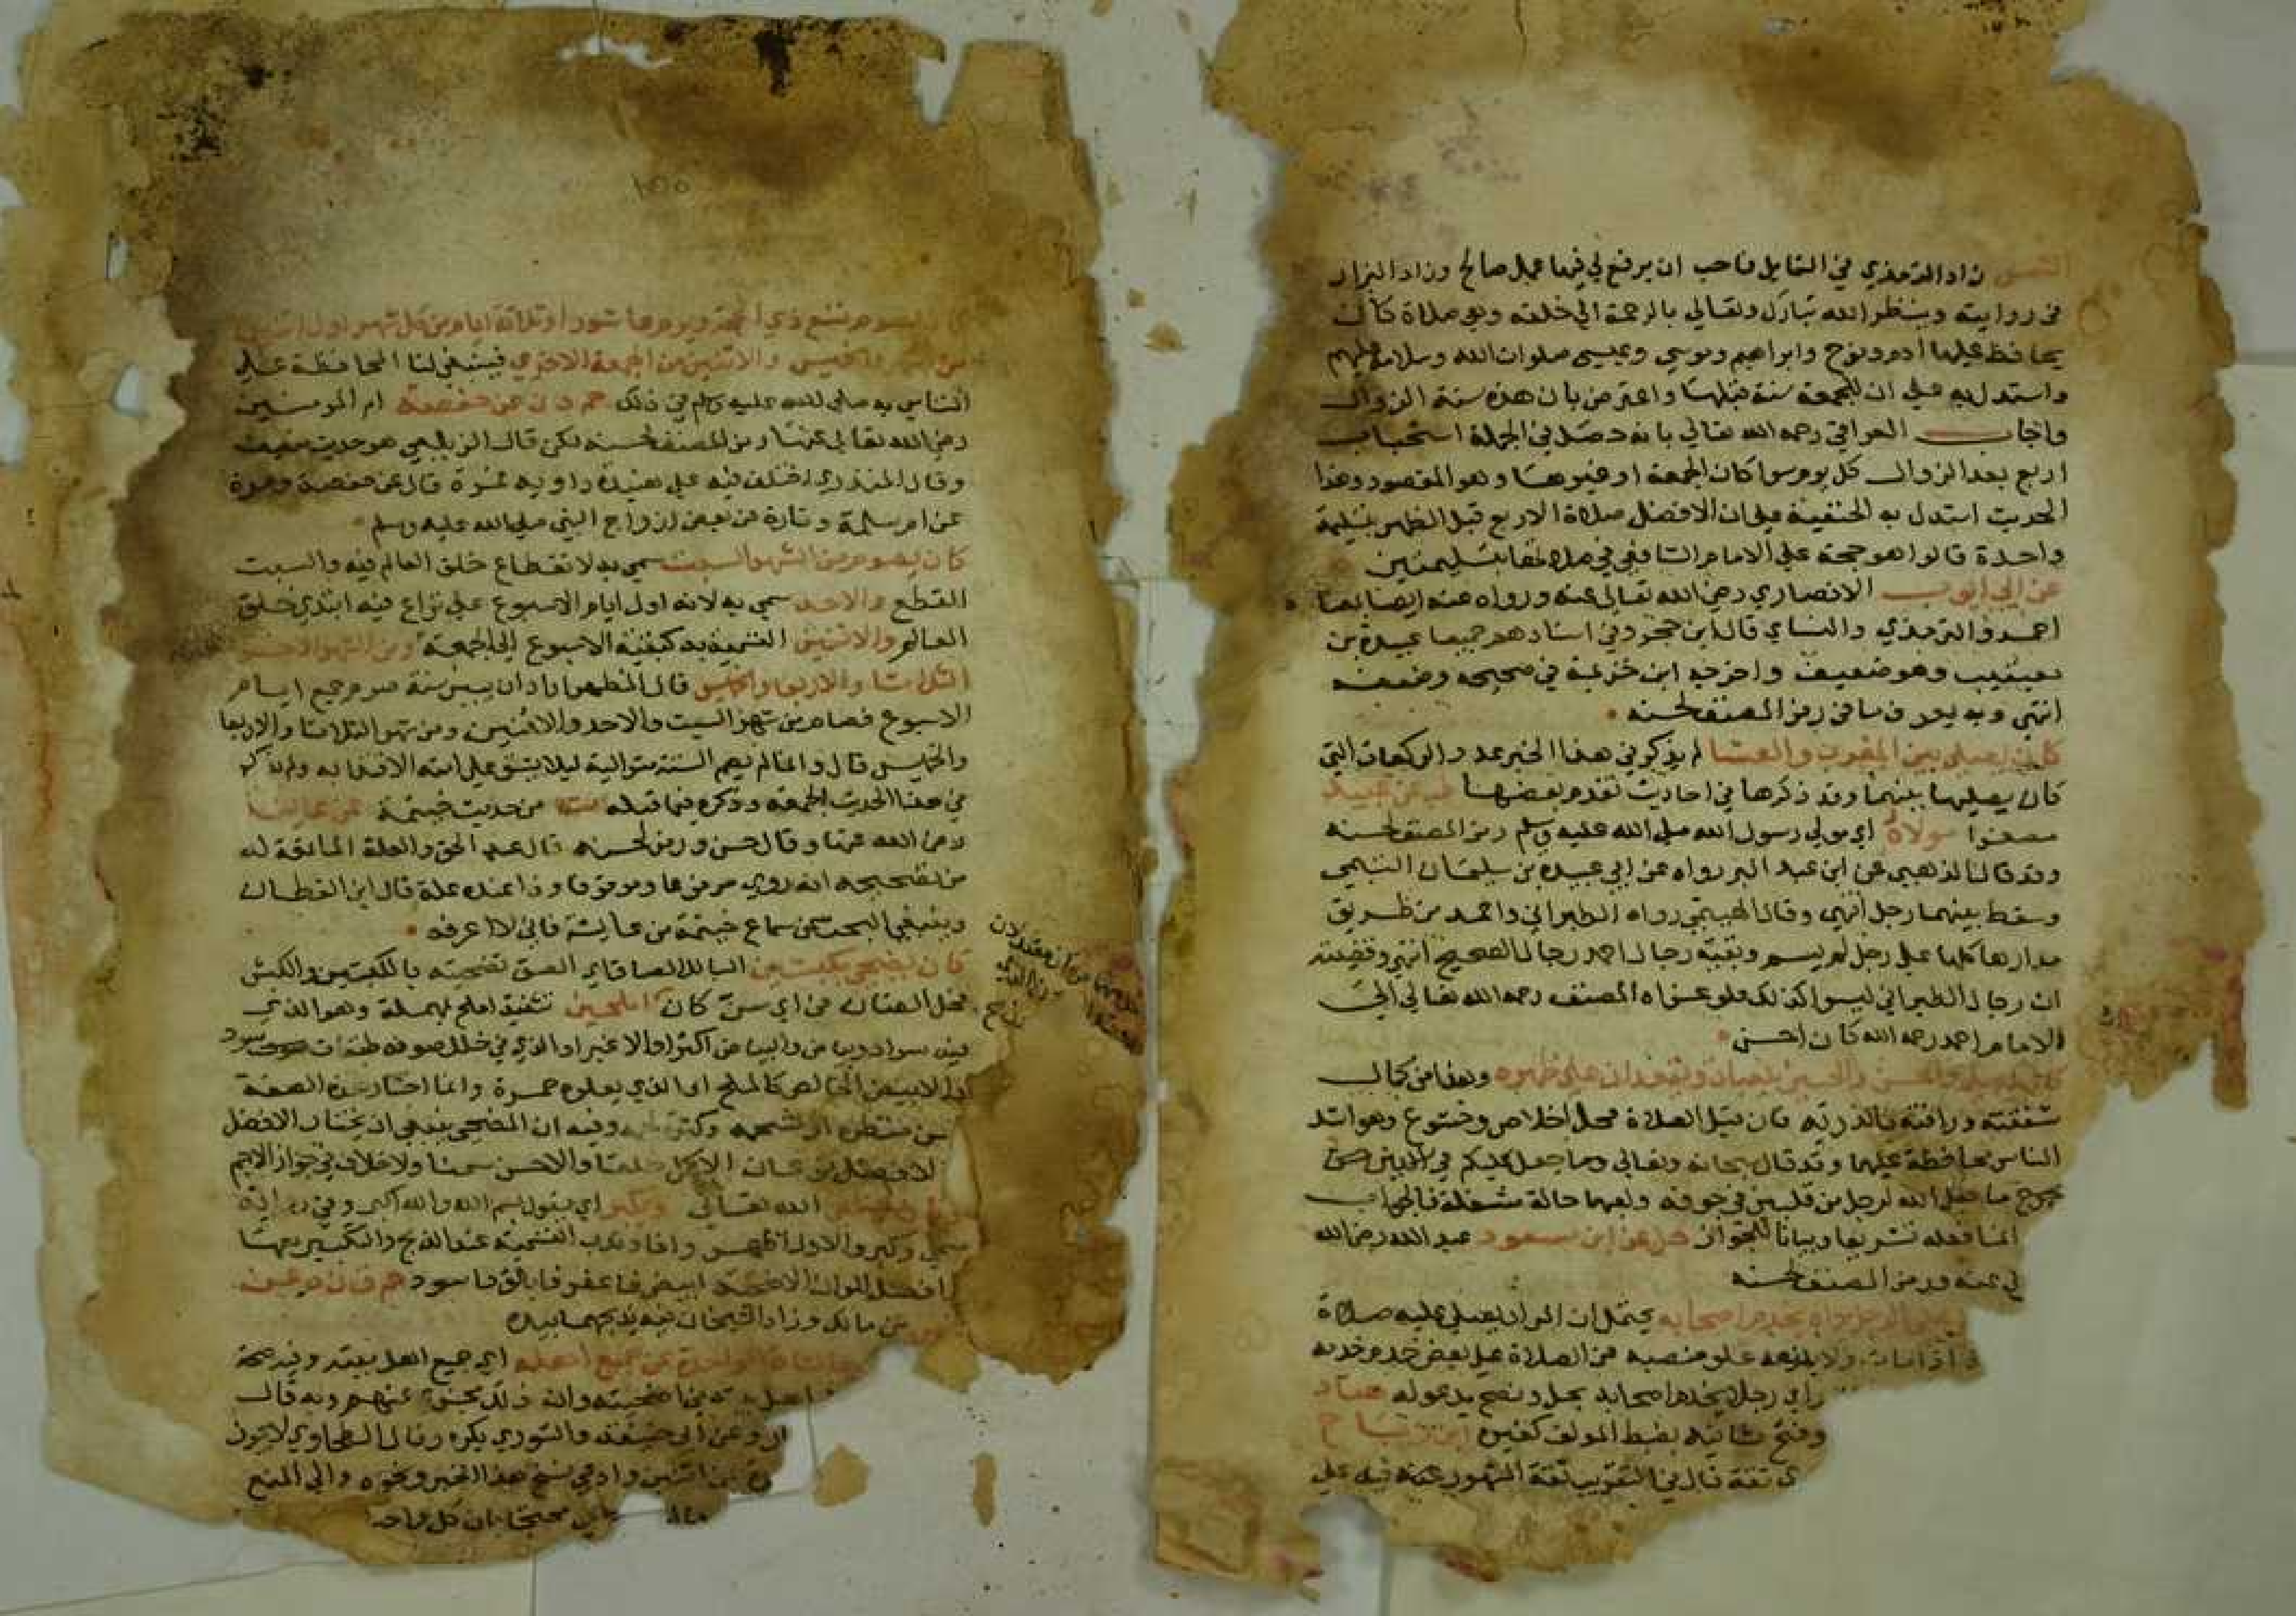 الشمس زاد الترمذي في الشمايل فاحب ان يرفع لي فيها عمل صالح وزاد البزار
في روايته وينظر الله تبارك وتعالي بالرحمة الي خلقه وهي صلاة كان
يحافظ عليها ادم ونوح وابراهيم وموسي وعيسي صلوات الله وسلامه عليهم
واستدل به علي ان للجمعة سنة قبلها واعترض بان هذه سنة الزوال
واجاب العراقي رحمه الله تعالي بانه حصل في الجملة استحباب
اربع بعد الزوال كل يوم سوا كان الجمعة او غيرها وهو المقصود وهذا
الحديث استدل به الحنفية علي ان الافضل صلاة الاربع قبل الظهر بتسليمة
واحدة قالوا هو حجة علي الامام الشافعي في صلاتها بتسليمتين
عن ابي ايوب الانصاري رضي الله تعالي عنه ورواه عنه ايضا
احمد والترمذي والنساي قال ابن حجر وفي اسنادهم جميعا عبيدة بن
معيقيب وهو ضعيف واخرجه ابن خزيمة في صحيحه وضعفه
انتهي وبه يعرف ما في رمز المصنف لحسنه
كان يصلي بين المغرب والعشا لم يذكر في هذا الخبر عدد الركعات التي
كان يصليها بينهما وقد ذكرها في احاديث تقدم بعضها طب عن عبيد
مصغرا مولاه اي مولي رسول الله صلي الله عليه وسلم رمز المصنف لحسنه
وقد قال الذهبي عن ابن عبد البر رواه عن ابي عبيدة بن سليمان التيمي
وسقط بينهما رجل انتهي وقال الهيثمي رواه الطبراني واحمد من طريق
مدارها كلها علي رجل لم يسم وبقية رجال احمد رجال الصحيح انتهي وقضيته
ان رجال الطبراني ليسوا كذلك فلو عزاه المصنف رحمه الله تعالي الي
الامام احمد رحمه الله كان احسن
كان يصلي والحسن والحسين يلعبان ويقعدان علي ظهره وهذا من كمال
شفقته ورافته بالذرية فان قيل الصلاة محل اخلاص وخشوع وهو اشد
الناس محافظة عليها وقد قال سبحانه وتعالي وما جعل عليكم في الدين من
حرج ما جعل الله لرجل من قلبين في جوفه ولعبهما حالة مشغلة فالجواب
انما فعله تشريعا وبيانا للجواز حل عن ابن مسعود عبد الله رضي الله
لي عنه ورمز المصنف لحسنه
يصلي علي الرجل يراه يخدم اصحابه يحتمل ان المراد يصلي عليه صلاة
اذا مات ولا يمنعه علو منصبه من الصلاة علي بعض خدم خدمه
راي رجلا يخدم اصحابه بجل ونصح يدعوله هناد
وفتح ثانيه بضبط المولف كغيره ابن رباح
ثقة قال في التقريب ثقة
يصوم تسع ذي الحجة ويوم عاشورا وثلاثة ايام من كل شهر اول اثنين
من الشهر والخميس والاثنين من الجمعة الاخري فينبغي لنا المحافظة علي
التاسي به صلي الله عليه وسلم في ذلك حم د ن عن حفصة ام المومنين
رضي الله تعالي عنها رمز المصنف لحسنه لكن قال الزيلعي هو حديث ضعيف
وقال المنذري اختلف فيه علي هنيدة راويه فمرة قال عن حفصة ومرة
عن ام سلمة وتارة عن بعض ازواج النبي صلي الله عليه وسلم
كان يصوم من الشهر السبت سمي به لانقطاع خلق العالم فيه والسبت
القطع والاحد سمي به لانه اول ايام الاسبوع علي نزاع فيه ابتدي خلق
العالم والاثنين التسمية به كبقية الاسبوع الي الجمعة ومن الشهر الاخر
الثلاثا والاربعا والخميس قال المظهر اراد ان يبين سنة صوم جميع ايام
الاسبوع فصام من شهر السبت والاحد والاثنين ومن شهر الثلاثا والاربعا
والخميس قال وانما لم يصم الستة متوالية ليلا يشق علي امته الاقتدا به ولم يذكر
في هذا الحديث الجمعة وذكره فيما قبله ت من حديث خيثمة عن عائشة
رضي الله عنها وقال حسن ورمز لحسنه قال عبد الحق والعلة المانعة له
من تصحيحه انه روي مرفوعا وموقوفا وذا عنده علة قال ابن القطان
وينبغي البحث عن سماع خيثمة من عائشة فاني لا اعرفه
كان يضحي بكبشين البا للالصاق اي الصق تضحيته بالكبشين والكبش
فحل الضان في اي سن كان املحين تثنية املح بمهملة وهو الذي
فيه سواد وبياض والبياض اكثر او الاغبر او الذي في خلل صوفه طبقات سود
او الابيض الخالص كالملح او الذي يعلوه حمرة وانما اختار هذه الصفة
وفيه ان المضحي ينبغي ان يختار الافضل
والاحسن سمنا ولا خلاف في جواز الاجم
الله تعالي ويكبر اي يقول بسم الله والله اكبر وفي رواية
سمي وكبر والاول اظهر وافاد ندب التسمية عند الذبح والتكبير معها
وافضل الوان الاضحية ابيض فاعفر فابلق فاسود حم ق ن ه عن
بن مالك وزاد الشيخان فيه يذبحهما بيده
بالشاة الواحدة عن جميع اهله اي جميع اهل بيته وفيه صحة
ابي حنيفة والثوري يكره وقال الطحاوي لا يجوز
اثنين وادعي نسخ هذا الخبر ونحوه والي المنع
محتجا بان كل واحد